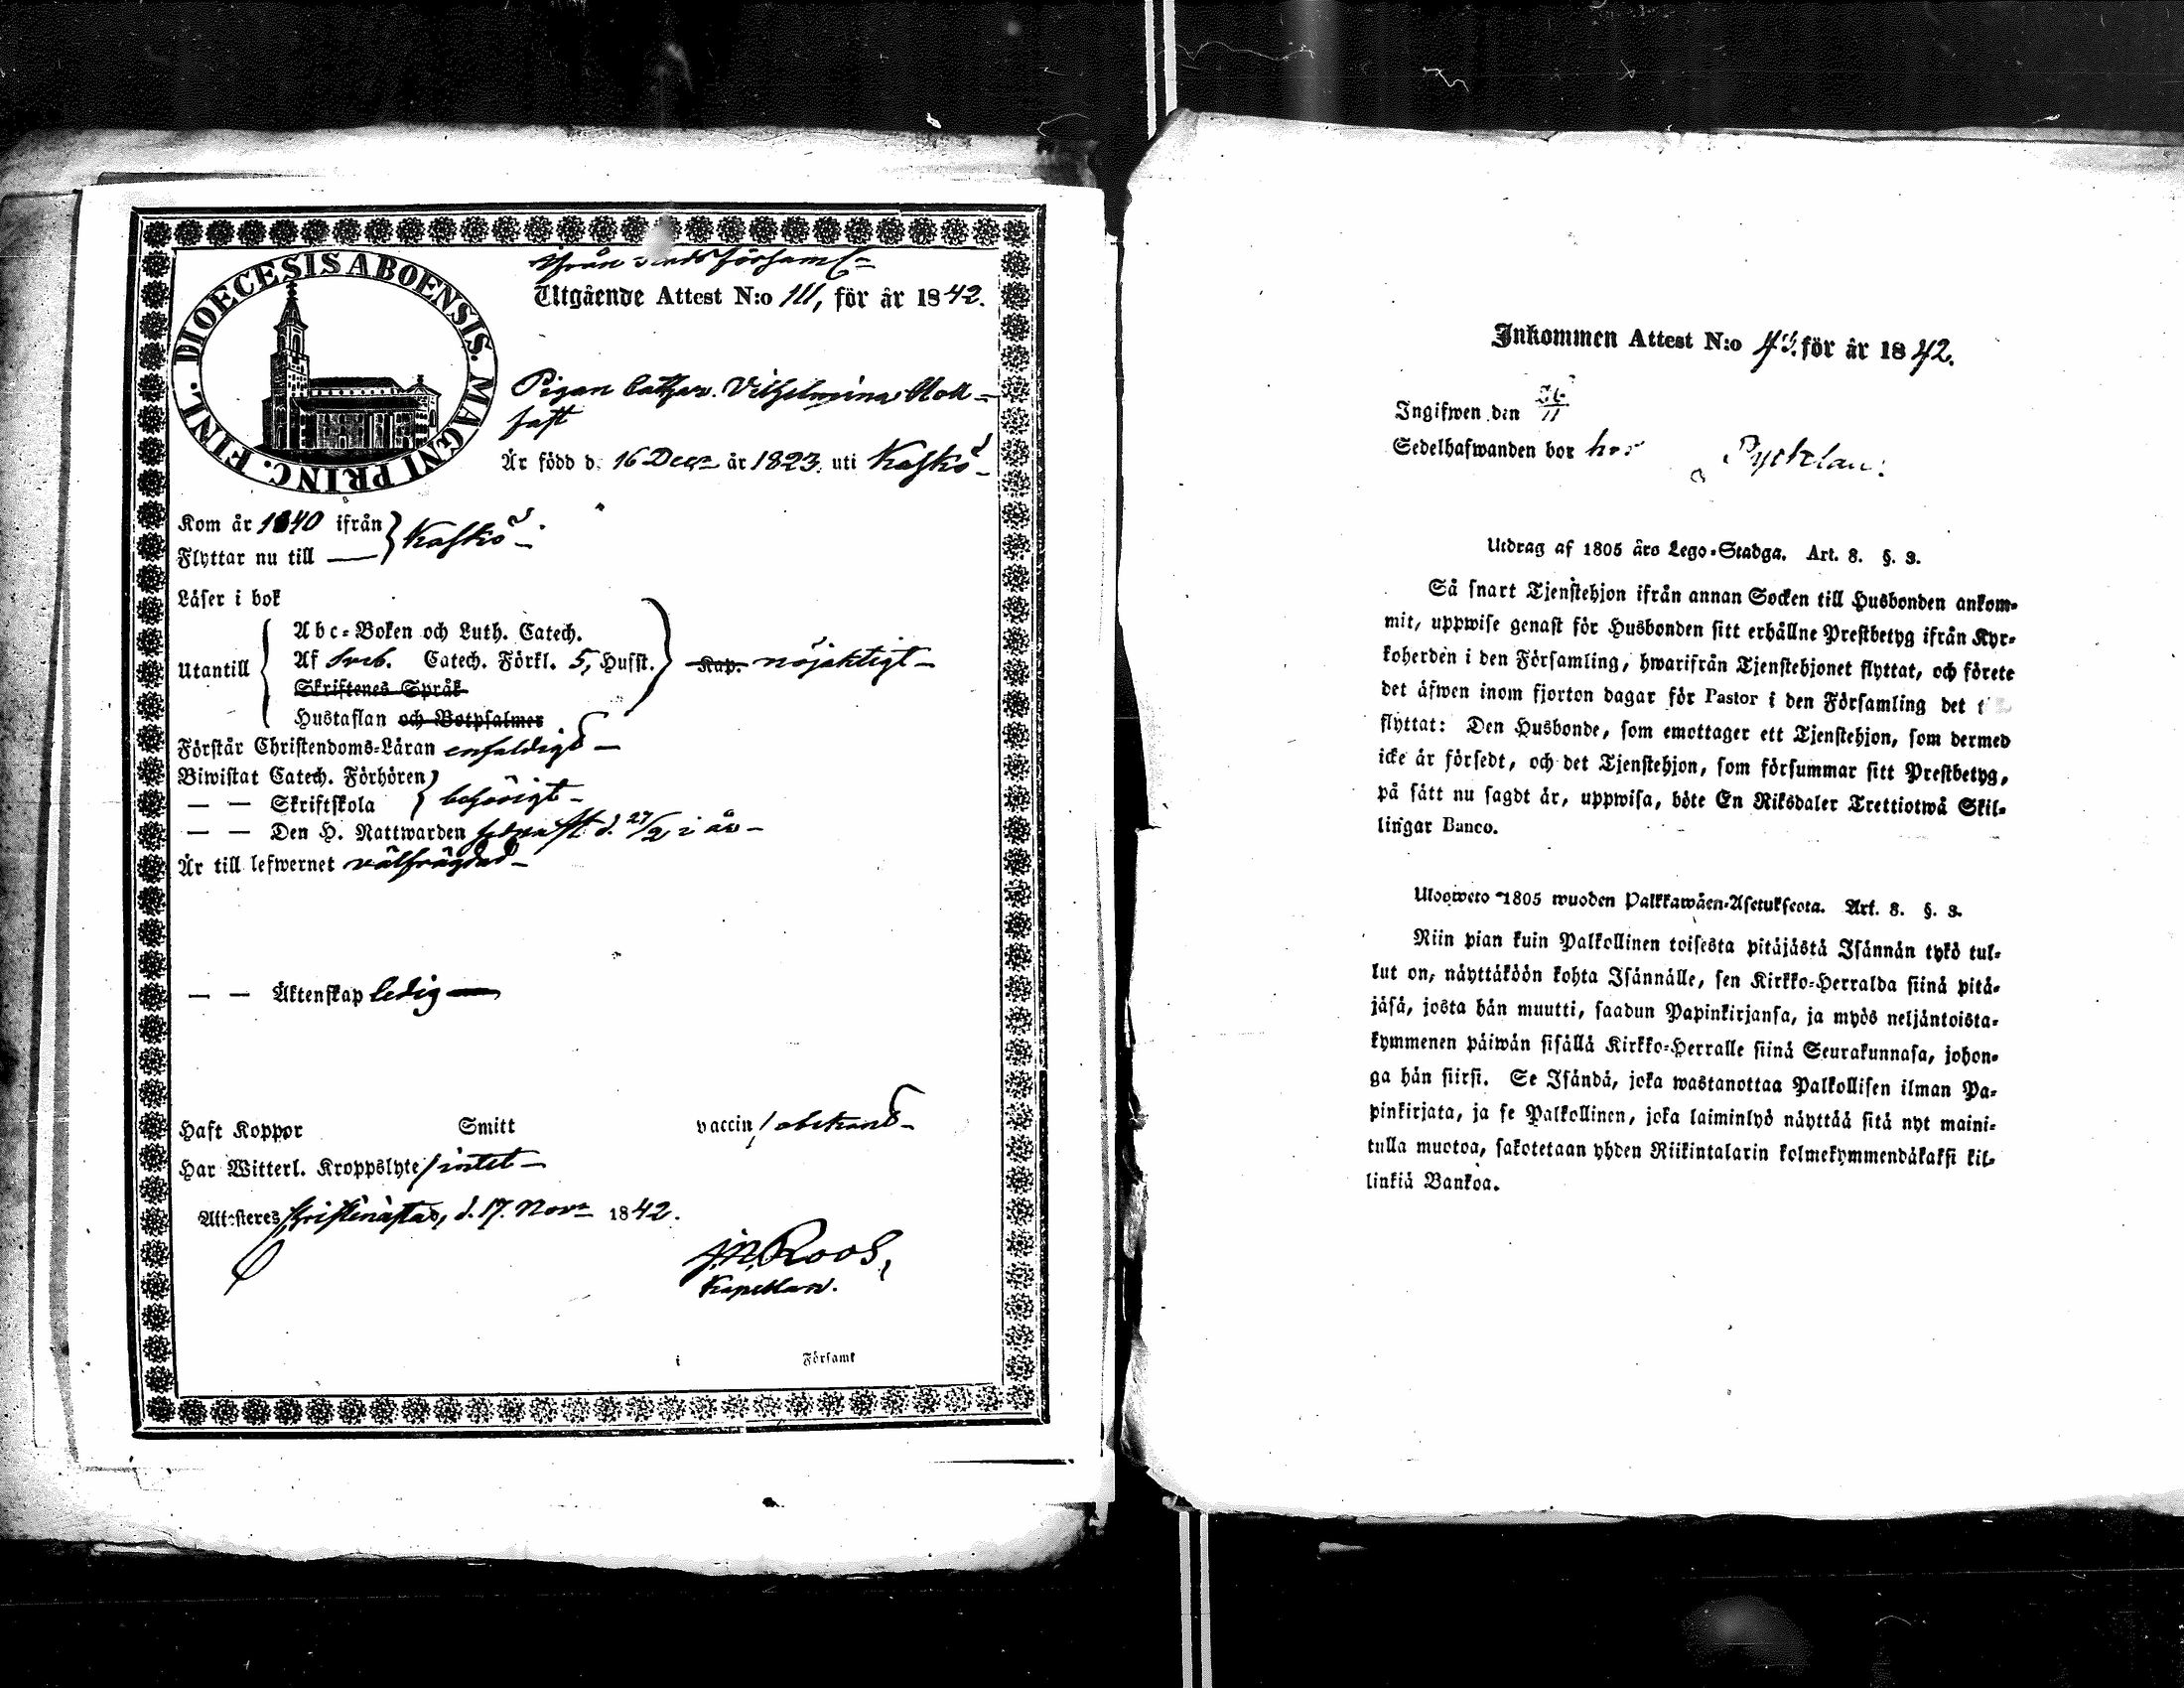 DIOECESIS ABOENSIS. MAGNI PRINC. FINL.
ifrån Stads Församl
Utgående Attest N:o 111, för år 1842.
Pigan Cathar. Vilhelmina Holl-
fast
Är född d. 16 Decr år 1823. uti Kaskö
Kom år 1840 ifrån } Kaskö
Flyttar nu till
Läser i bok
Utantill { Abc-Boken och Luth. Catech.
Af Sveb. Catech. Förkl. 5, Husst. } Kap. nöjaktigt
Skriftenes Språk
Hustaflan och Botpsalmer
Förstår Christendoms-Läran enfaldigt
Biwistat Catech. Förhören }
— — Skriftskola } behörigt
— — Den H. Nattwarden d. 27/2 i år
Är till lefwernet välfrägdad
— — Äktenskap ledig
Haft Koppor Smitt vaccin obekant
Har Witterl. Kroppslyte intet
Attesteres Kristinästad, d. 17. Novr 1842.
J.N. Roos,
Kapellan.
i Församl
Inkommen Attest N:o 43. för år 1842.
Ingifwen den 26/11
Sedelhafwanden bor hos
Utdrag af 1805 års Lego-Stadga. Art. 8. §. 3.
Så snart Tjenstehjon ifrån annan Socken till Husbonden ankom-
mit, uppwise genast för Husbonden sitt erhållne Prestbetyg ifrån Kyr-
koherden i den Församling, hwarifrån Tjenstehjonet flyttat, och förete
det äfwen inom fjorton dagar för Pastor i den Församling det
flyttat: Den Husbonde, som emottager ett Tjenstehjon, som dermed
icke är försedt, och det Tjenstehjon, som försummar sitt Prestbetyg,
på sätt nu sagdt är, uppwisa, böte En Riksdaler Trettiotwå Skil-
lingar Banco.
Ulosweto 1805 wuoden Palkkawäen-Asetuksesta. Art. 8. §. 3.
Niin pian kuin Palkollinen toisesta pitäjästä Isännän tykö tul-
lut on, näyttäköön kohta Isännälle, sen Kirkko-Herralda siinä pitä-
jäsä, josta hän muutti, saadun Papinkirjansa, ja myös neljäntoista-
kymmenen päiwän sisällä Kirkko-Herralle siinä Seurakunnasa, johon-
ga hän siirsi. Se Isändä, joka wastanottaa Palkollisen ilman Pa-
pinkirjata, ja se Palkollinen, joka laiminlyö näyttää sitä nyt maini-
tulla muotoa, sakotetaan yhden Riikintalarin kolmekymmendäkaksi kil-
linkiä Bankoa.